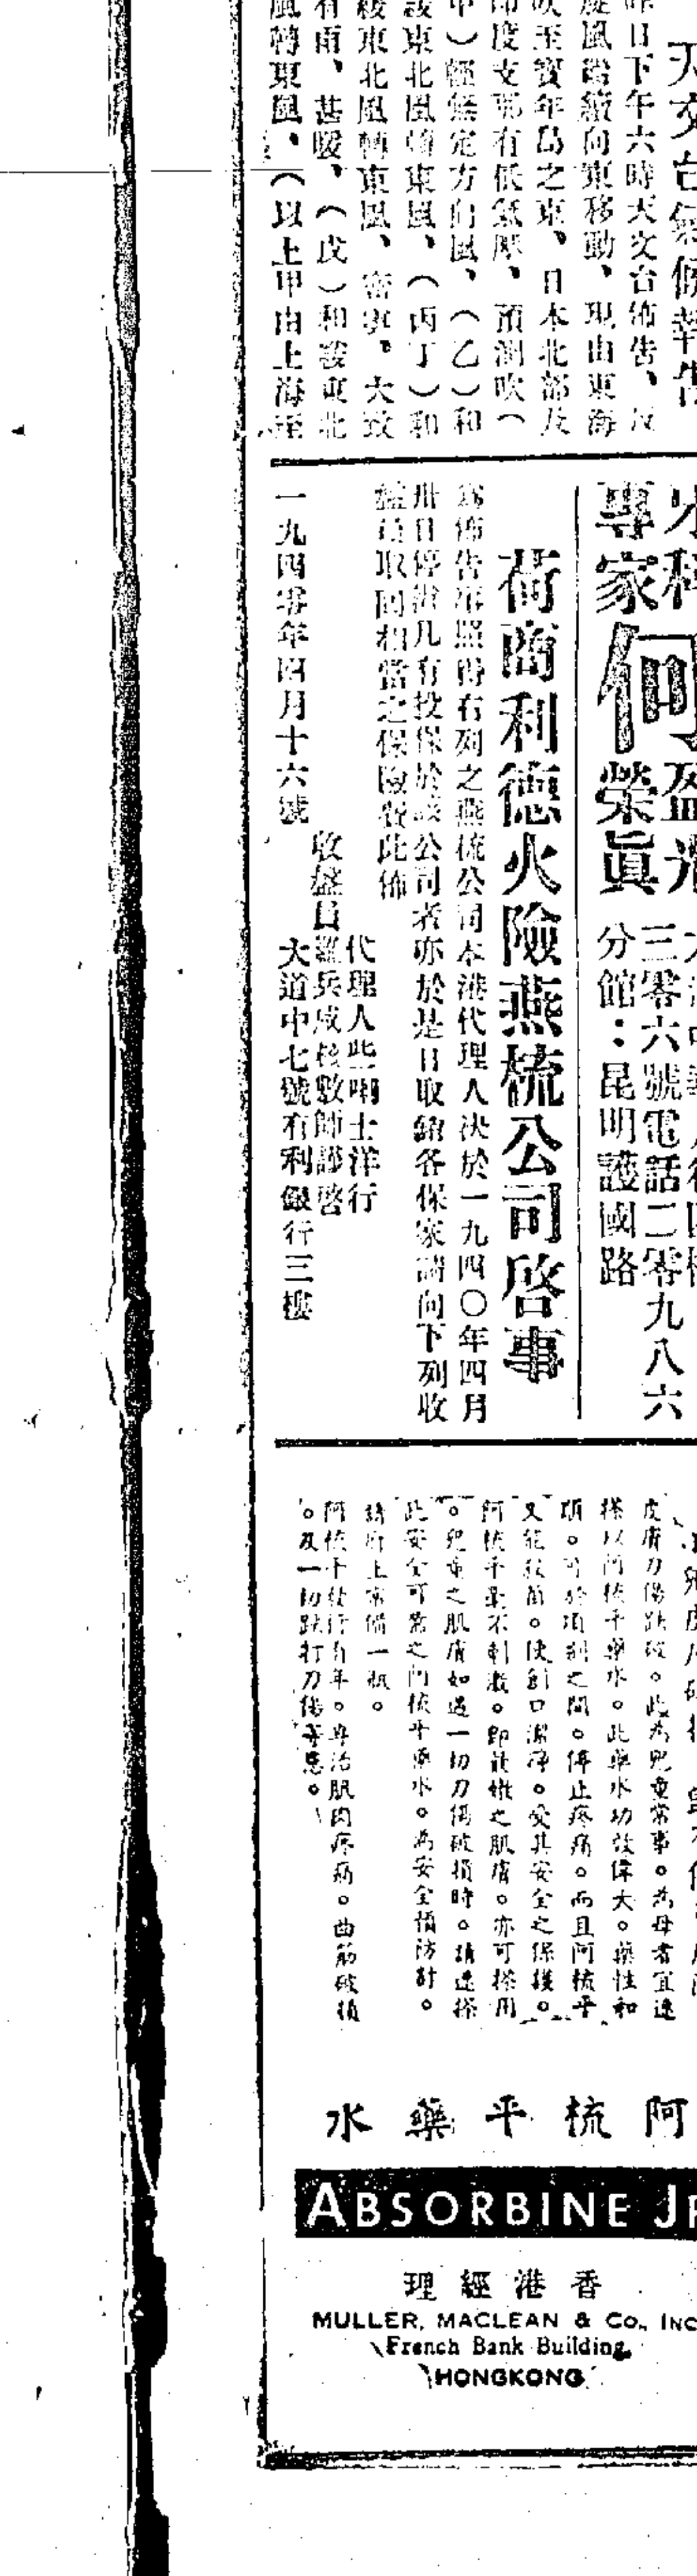 天文台氣候報告
昨日下午六時天文台佈告、反
旋風繼續向東移動、現由東海
伸至賓年島之東、日本北部及
印度支那有低氣壓、預測吹（
甲）輕無定方向風、（乙）和
緩東北風轉東風、（丙丁）和
緩東北風轉東風、密雲、大致
有雨、甚暖、（戊）和緩東北
風轉東風、（以上甲由上海至
專家何
榮眞
三零六號電話二零九八六
分館：昆明護國路
荷商利德火險燕梳公司啓事
為佈告事照得右列之燕梳公司本港代理人決於一九四〇年四月
卅日停辦凡有投保於該公司者亦於是日取銷各保家請向下列收
盤員取回相當之保險費此佈
代理人此喇士洋行
收盤員羅兵咸核數師謹啓
大道中七號有利銀行三樓
一九四零年四月十六號
皮膚刀傷跌破。此為兒童常事。為母者宜速
搽以阿梳平藥水。此藥水功效偉大。藥性和
順。可於頃刻之間。停止疼痛。而且阿梳平
又能殺菌。使創口潔淨。受其安全之保護。
阿梳平毫不刺激。卽最嫩之肌膚。亦可搽用
。兒童之肌膚如遇一切刀傷破損時。請速搽
此安全可靠之阿梳平藥水。為安全預防計。
請府上常備一瓶。
阿梳平發行有年。專治肌肉疼痛。曲筋破損
。及一切跌打刀傷等患。
阿梳平藥水
ABSORBINE
香港經理
MULLER, MACLEAN & Co., INC
French Bank Building,
HONGKONG